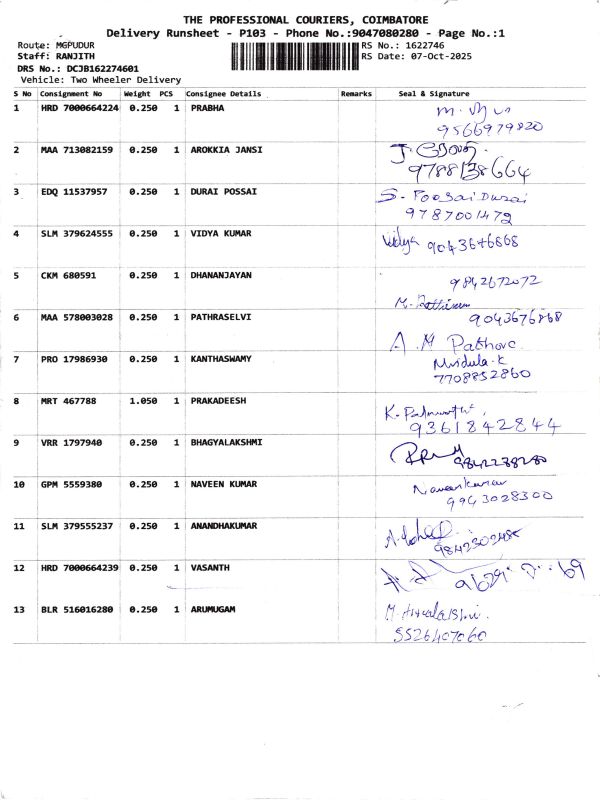 THE PROFESSIONAL COURIERS, COIMBATORE
Delivery Runsheet - P103 - Phone No.:9047080280 - Page No.:1
Route: MGPUDUR RS No.: 1622746
Staff: RANJITH RS Date: 07-Oct-2025
DRS No.: DCJB162274601
Vehicle: Two Wheeler Delivery
S No Consignment No Weight PCS Consignee Details Remarks Seal & Signature
1 HRD 7000664224 0.250 1 PRABHA
9566979820
2 MAA 713082159 0.250 1 AROKKIA JANSI
9788138664
3 EDQ 11537957 0.250 1 DURAI POSSAI S. Poosai Durai
9787001472
4 SLM 379624555 0.250 1 VIDYA KUMAR Vidya 9043646868
5 CKM 680591 0.250 1 DHANANJAYAN 9842672072
6 MAA 578003028 0.250 1 PATHRASELVI 9043676868
A.M
7 PRO 17986930 0.250 1 KANTHASWAMY Mridula.K
7708852860
8 MRT 467788 1.050 1 PRAKADEESH
9361842844
9 VRR 1797940 0.250 1 BHAGYALAKSHMI
9842238280
10 GPM 5559380 0.250 1 NAVEEN KUMAR Naveenkumar
9943028300
11 SLM 379555237 0.250 1 ANANDHAKUMAR
12 HRD 7000664239 0.250 1 VASANTH
13 BLR 516016280 0.250 1 ARUMUGAM
5526407060